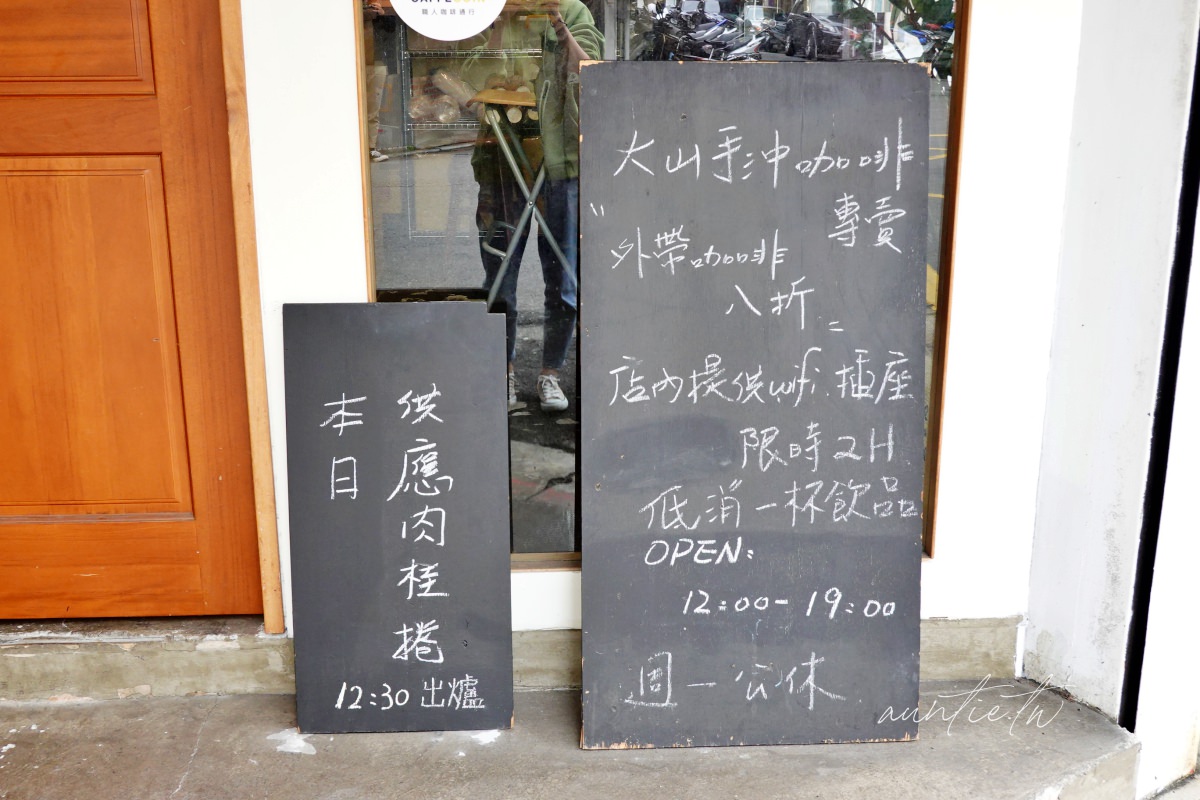 職人咖啡通行
本日
供應肉桂捲
12:30 出爐
大山手沖咖啡
專賣
"外帶咖啡
八折"
店內提供wifi.插座
限時2H
低消一杯飲品
OPEN:
12:00-19:00
週一公休
auntie.tw